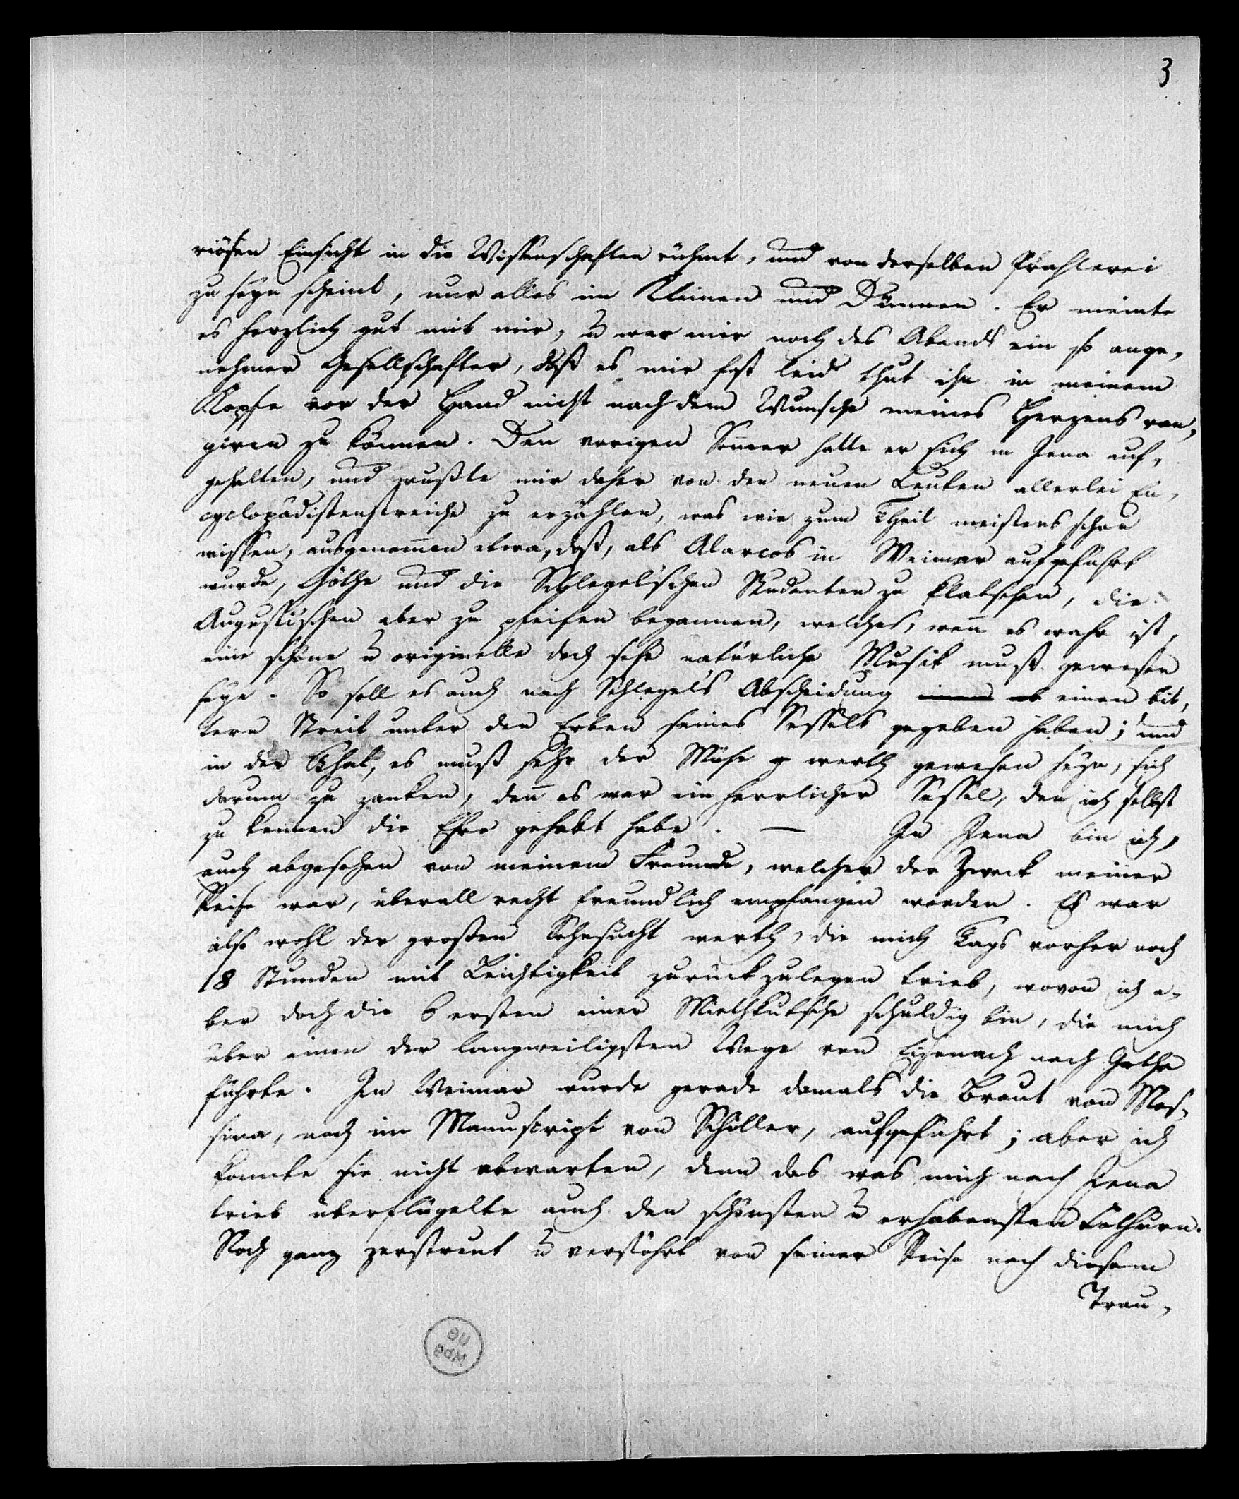 3
riösen Einsicht in die Wissenschaften rühmt, und von derselben Prahlerei
zu seyn scheint, nur alles im Kleinen und Dünnen. Er meinte
es herzlich gut mit mir, u war mir noch des Abends ein so ange-
nehmer Gesellschafter, daß es mir fast leid thut ihn in meinem
Kopfe vor der Hand nicht nach dem Wunsche meines Herzens ran-
giren zu können. Den vorigen Sommer hatte er sich in Jena auf-
gehalten, und wußte mir daher von den neuen Leuten allerlei En-
cyclopädistenstreiche zu erzählen, was wir zum Theil meistens schon
wissen, ausgenommen etwa, daß, als Alarcos in Weimar aufgeführt
wurde, Göthe und die Schlegel'schen Studenten zu klatschen, die
Augusti'schen aber zu pfeifen begannen, welches, wenn es wahr ist,
eine schöne u originelle doch sehr natürliche Musik muß gewesen
seyn. So soll es auch nach Schlegels Abscheidung einen bit-
tern Streit unter den Erben seines Sessels gegeben haben; und
in der That, es muß sehr der Mühe werth gewesen seyn, sich
darum zu zanken, denn es war ein herrlicher Sessel, den ich selbst
zu kennen die Ehre gehabt habe. — In Jena bin ich,
auch abgesehen von meinem Freunde, welcher der Zweck meiner
Reise war, überall recht freundlich empfangen worden. Es war
also wohl der großen Sehnsucht werth, die mich Tags vorher noch
18 Stunden mit Leichtigkeit zurückzulegen trieb, wovon ich a-
ber doch die 6 ersten einer Miethkutsche schuldig bin, die mich
über einen der langweiligsten Wege von Eisenach nach Gotha
führte. In Weimar wurde gerade damals die Braut von Mes-
sina, noch im Manuscript von Schiller, aufgeführt; aber ich
konnte sie nicht abwarten, denn das was mich nach Jena
trieb überflügelte auch den schönsten u erhabensten Cothurn.
Noch ganz zerstreut u verstöhrt von seiner Reise nach diesem
Trau-